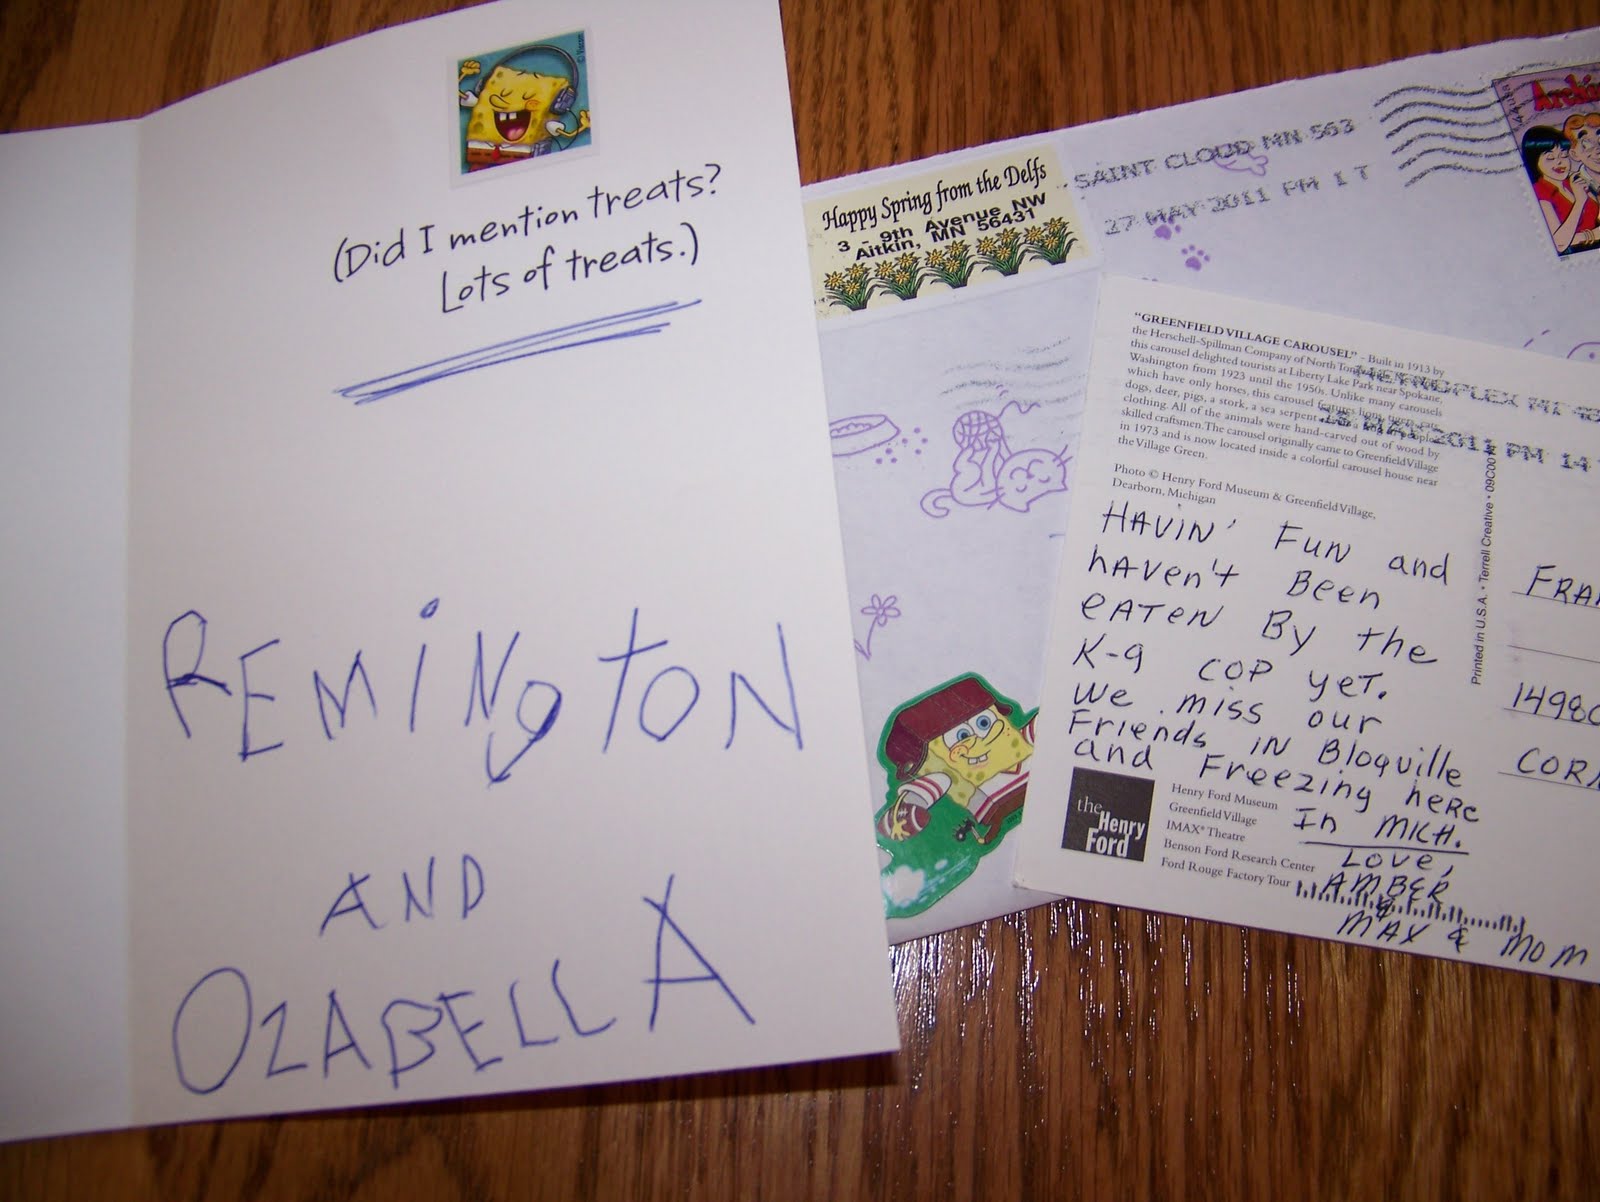 © Viacom
(Did I mention treats?
Lots of treats.)
REMINgTON
AND
OZABELLA
Happy Spring from the Delfs
3 - 9th Avenue NW
Aitkin, MN 56431
SAINT CLOUD MN 563
27 MAY 2011 PM 1 T
Archie
"GREENFIELD VILLAGE CAROUSEL" - Built in 1913 by
the Herschell-Spillman Company of North
this carousel delighted tourists at Liberty Lake Park near Spokane,
Washington from 1923 until the 1950s. Unlike many carousels
which have only horses, this carousel features lions,
dogs, deer, pigs, a stork, a sea serpent
clothing. All of the animals were hand-carved out of wood by
skilled craftsmen. The carousel originally came to Greenfield Village
in 1973 and is now located inside a colorful carousel house near
the Village Green.
METROPLEX MI 48
2011 PM 14
Photo © Henry Ford Museum & Greenfield Village,
Dearborn, Michigan
HAVIN' FUN and
hAVen't Been
eATen By the
K-9 COP yeT.
We miss our
Friends in Bloqville
and Freezing here
In MICH.
Love,
AMBER
&
MAX & Mom
the
Henry
Ford
Henry Ford Museum
Greenfield Village
IMAX® Theatre
Benson Ford Research Center
Ford Rouge Factory Tour
Printed in U.S.A. • Terrell Creative •
FRA
1498
COR